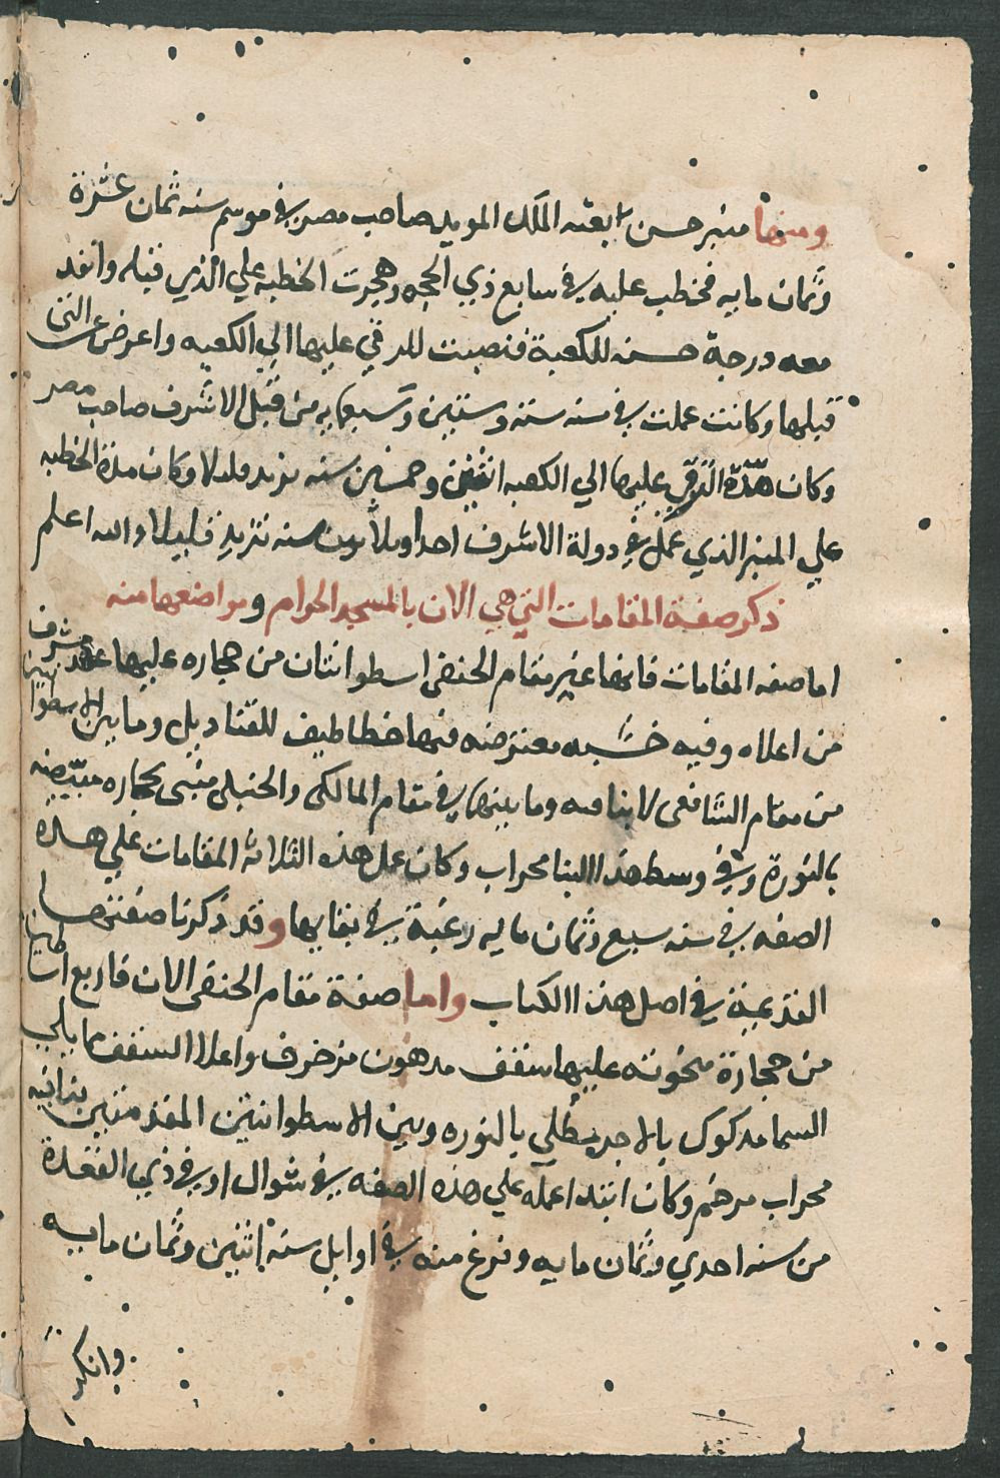 ومنها منبر حسن بعثه الملك المويد صاحب مصر في موسم سنه ثمان عشرة
وثمان مايه فخطب عليه في سابع ذي الحجه وهجرت الخطبه علي الذي قبله وانفد
معه درجة حسنه للكعبة فنصبت للرقي عليها الي الكعبه واعرض عن التي
قبلها وكانت عملت في سنه ستة وستين وسبعمايه من قبل الاشرف صاحب مصر
وكان مدة الرقي عليها الي الكعبه اثنين وخمسين سنه تزيد قليلا وكان مدة الخطبه
علي المنبر الذي عمل في دولة الاشرف احدا وثلاثون سنه تزيد قليلا والله اعلم
ذكر صفة المقامات التي هي الان بالمسجد الحرام ومواضعها منه
اما صفه المقامات فانها غير مقام الحنفي اسطوانتان من حجاره عليها عقد مشرف
من اعلاه وفيه خشبه معترضه فيها خطاطيف للقناديل وما بين الاسطوانتين
من مقام الشافعي لا بنا فيه وما بينها في مقام المالكي والحنبلي مبني بحجاره مبيضه
بالنورة وفي وسط هذا البنا محراب وكان عمل هذه الثلاثة المقامات علي هذه
الصفه في سنه سبع وثمان مايه رغبة في بقايها وقد ذكرنا صفتها
القديمة في اصل هذا الكتاب واما صفة مقام الحنفي الان فاربع اساطين
من حجارة منحوته عليها سقف مدهون مزخرف واعلا السقف مما يلي
السما مدكوك بالاجر مطلي بالنوره وبين الاسطوانتين المقدمتين بنا فيه
محراب مرخم وكان ابتدا عمله علي هذه الصفه في شوال او في ذي القعدة
من سنه احدي وثمان مايه وفرغ منه في اوايل سنه اثنين وثمان مايه
وانكر